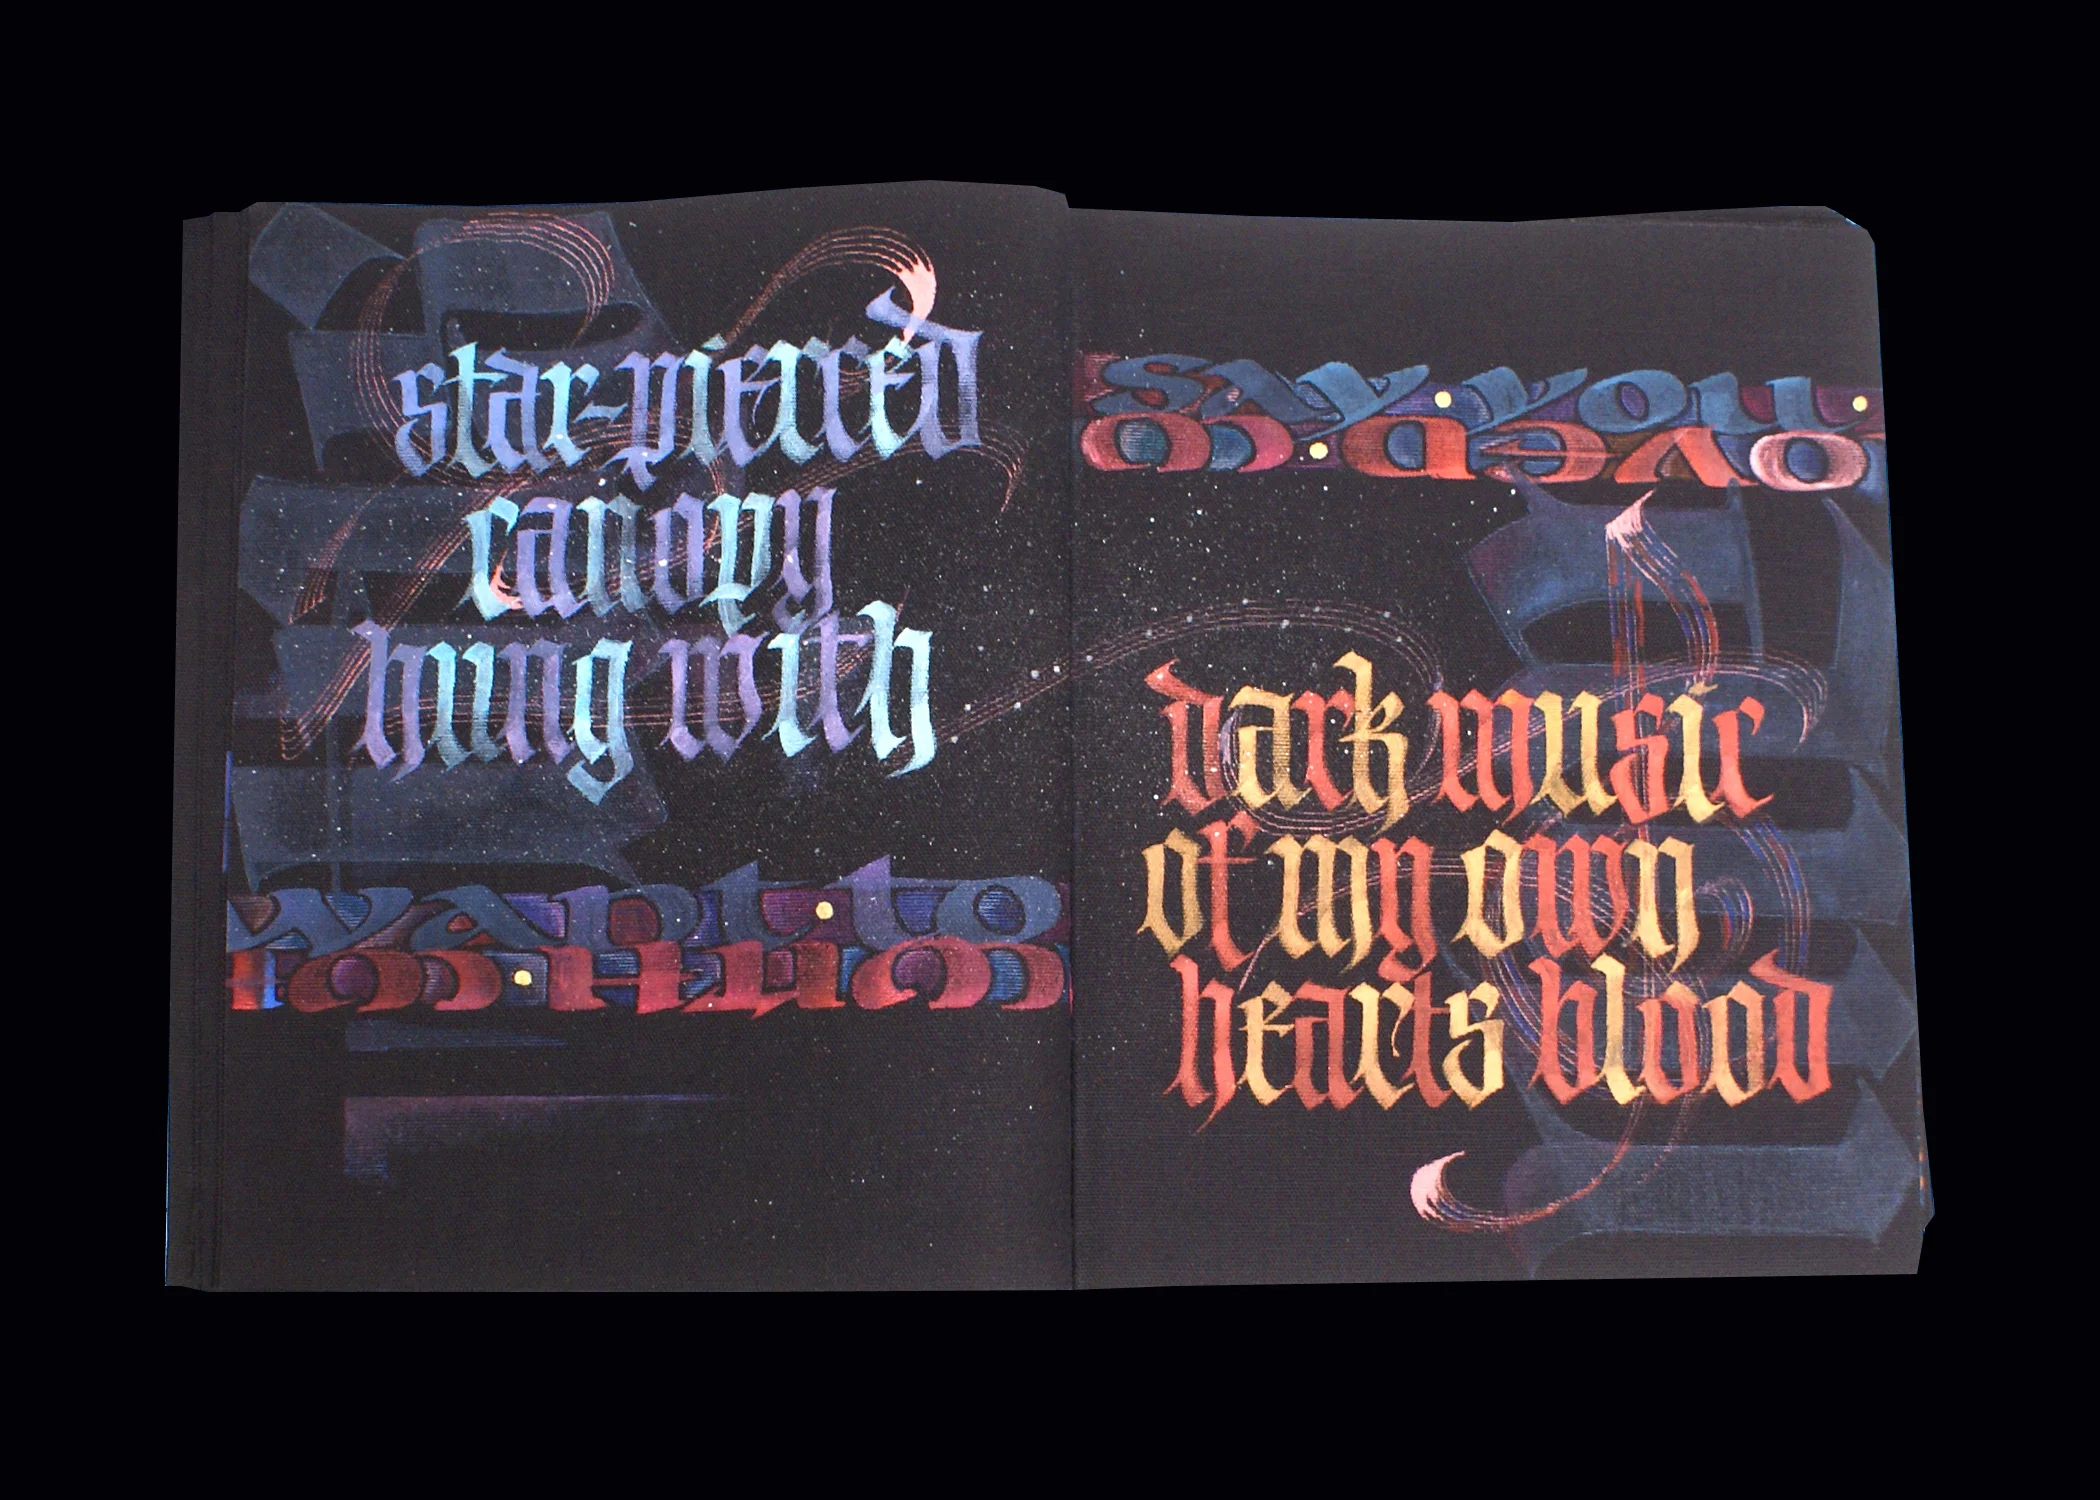 star-pierced
canopy
hung with
want to
say you
dark music
of my own
hearts blood